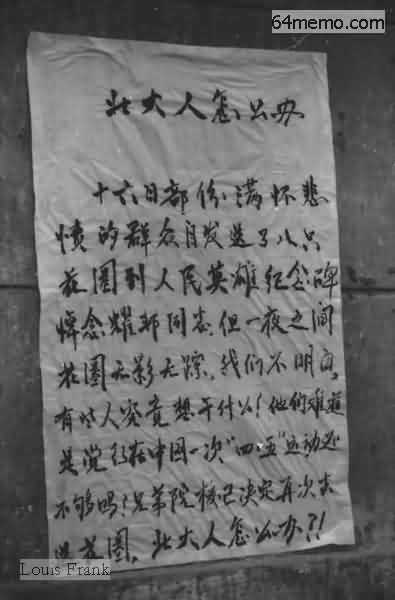 64memo.com
北大人怎么办
十六日部份满怀悲
愤的群众自发送了八只
花圈到人民英雄纪念碑
悼念耀邦同志.但一夜之间
花圈无影无踪。我们不明白,
有些人究竟想干什么!他们难道
是觉得在中国一次“四·五”运动还
不够吗?兄弟院校已决定再次去
送花圈。北大人怎么办?!
Louis Frank